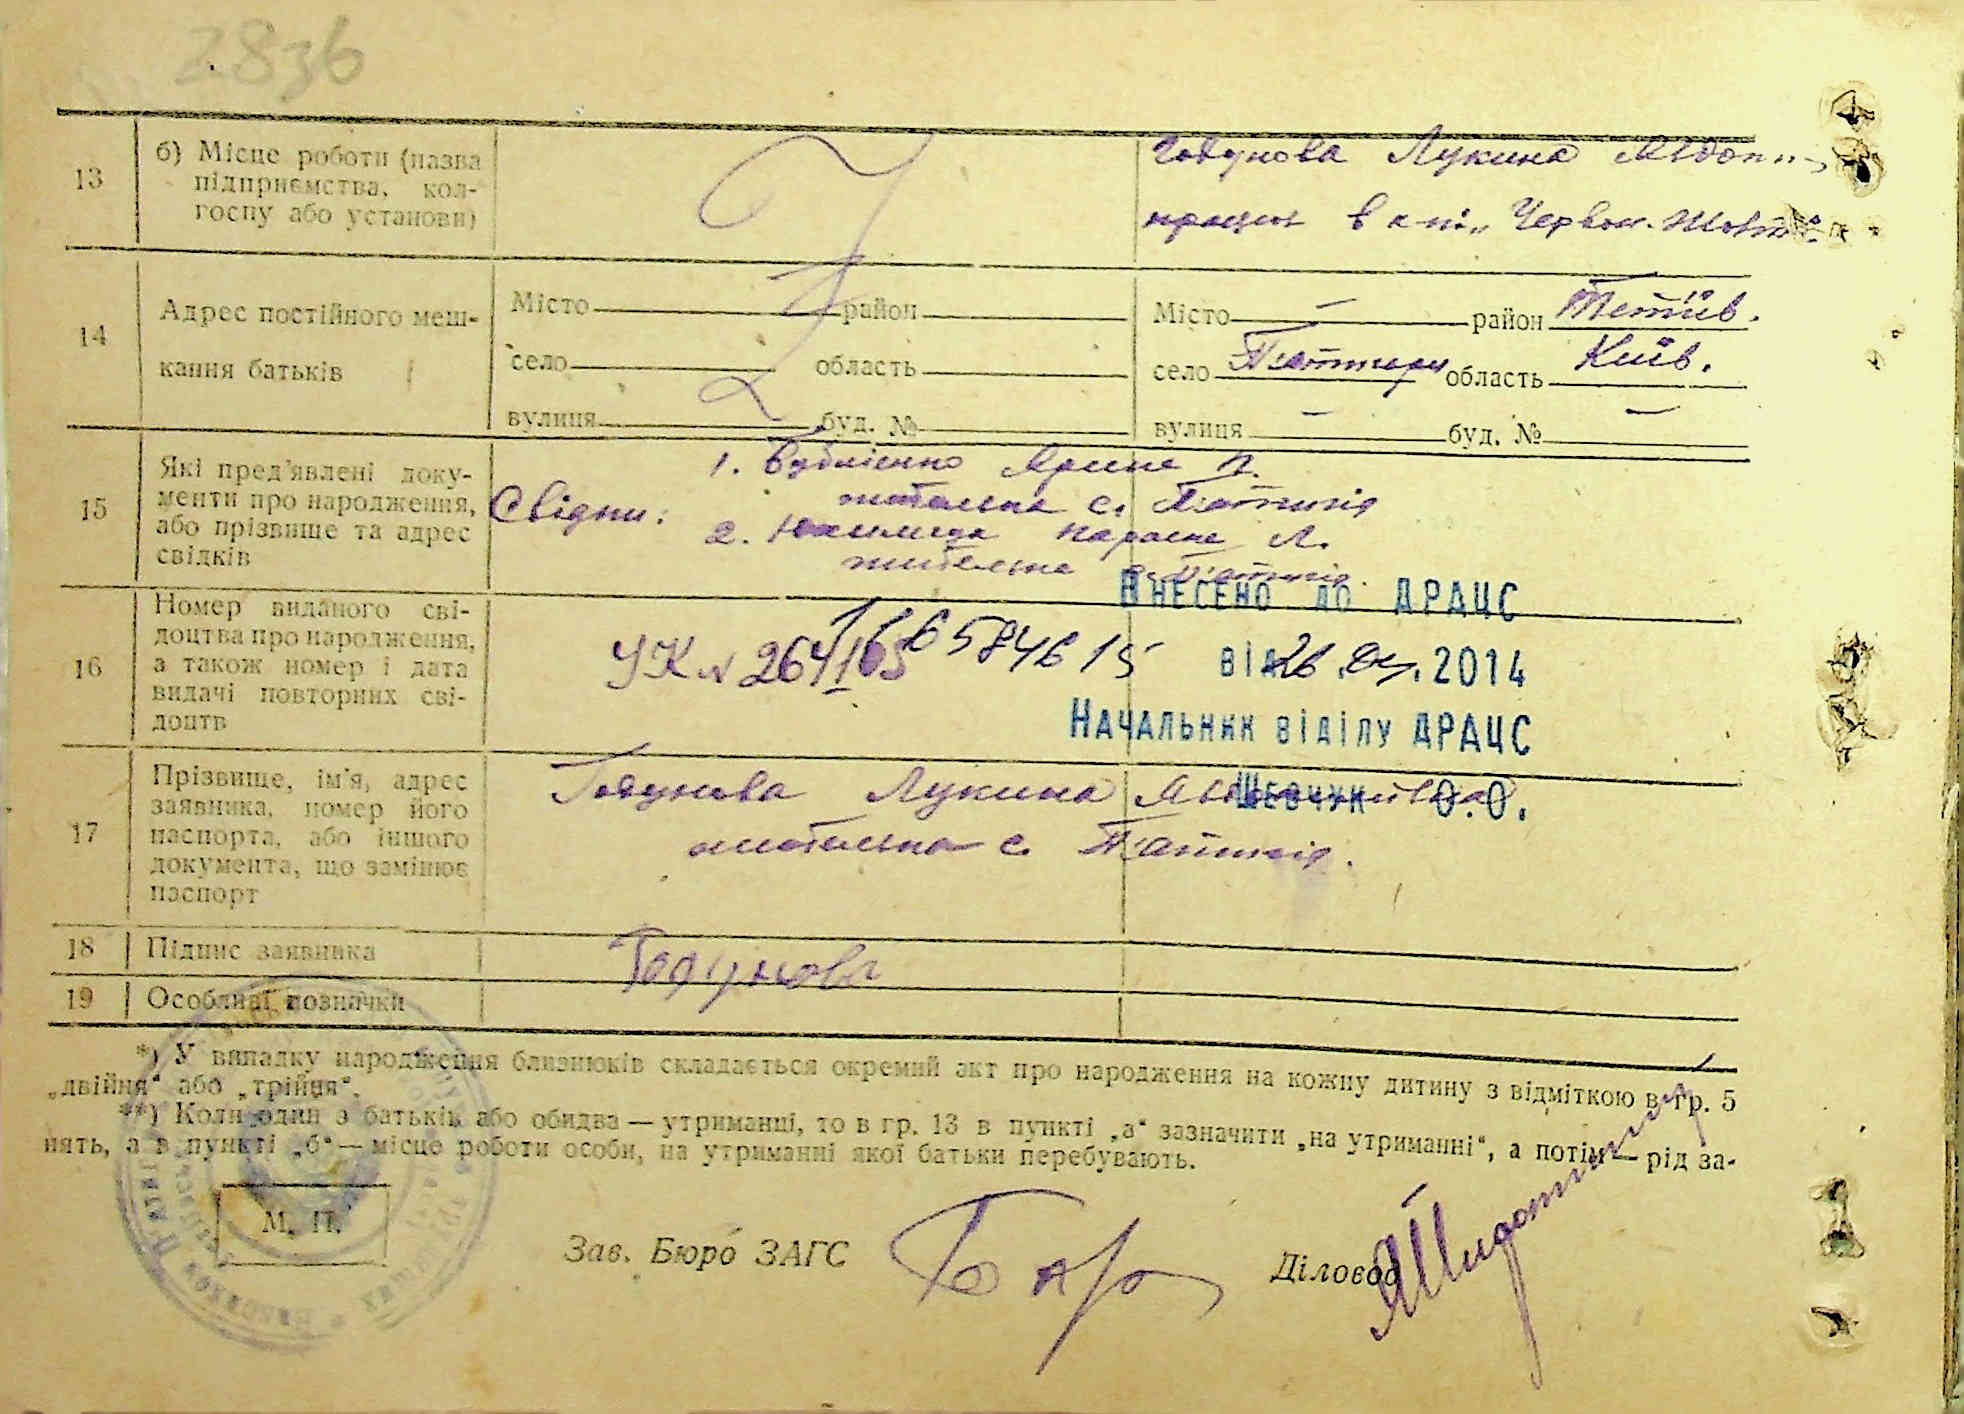 2836
13
б) Місце роботи (назва
підприємства, кол-
госпу або установи)
Годунова Лукина
працює в к-пі „Червон.
14
Адрес постійного меш-
кання батьків
Місто район
село область
вулиця буд. №
Місто — район Тетіїв.
село П'ятигори область Київ.
вулиця — буд. № —
15
Які пред'явлені доку-
менти про народження,
або прізвище та адрес
свідків
Свідки:
1. Ярина
жителька с. П'ятигір
2. Параска Л.
жителька с. П'ятигір.
16
Номер виданого сві-
доцтва про народження,
а також номер і дата
видачі повторних сві-
доцтв
УК №
ВНЕСЕНО ДО ДРАЦС
від 2014
НАЧАЛЬНИК ВІДІЛУ ДРАЦС
ШЕВЧУК О.О.
17
Прізвище, ім'я, адрес
заявника, номер його
паспорта, або іншого
документа, що замінює
паспорт
Годунова Лукина
жителька с. П'ятигір.
18
Підпис заявника
Годунова
19
Особливі позначки
*) У випадку народження близнюків складається окремий акт про народження на кожну дитину з відміткою в гр. 5
„двійня“ або „трійня“.
**) Коли один з батьків або обидва — утриманці, то в гр. 13 в пункті „а“ зазначити „на утриманні“, а потім — рід за-
нять, а в пункті „б“ — місце роботи особи, на утриманні якої батьки перебувають.
М. П.
Зав. Бюро ЗАГС
Діловод